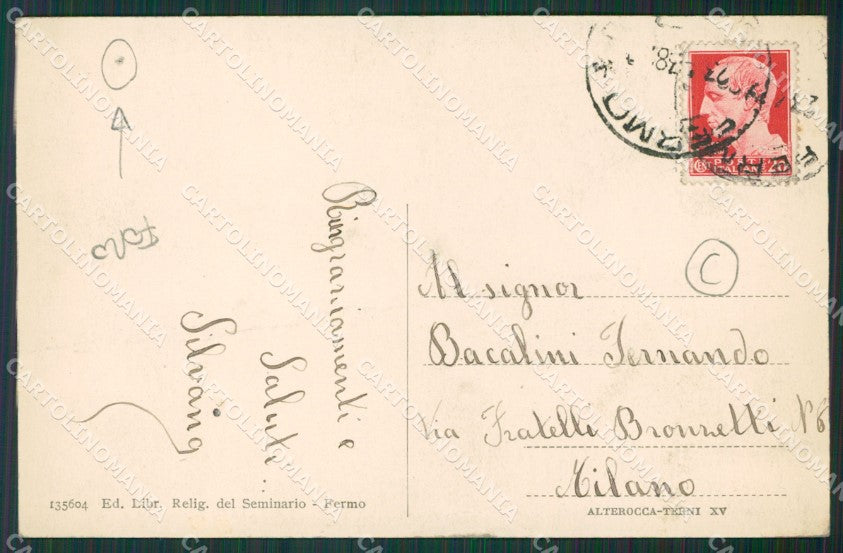 Ringraziamenti e
Saluti...
Silvana
Foro
C
FERMO
POSTE ITALIANE
CENT 20
Al signor
Bacalini Fernando
Via Fratelli Bronzetti N° 6
Milano
135604 Ed. Libr. Relig. del Seminario - Fermo
ALTEROCCA-TERNI XV
CARTOLINOMANIA